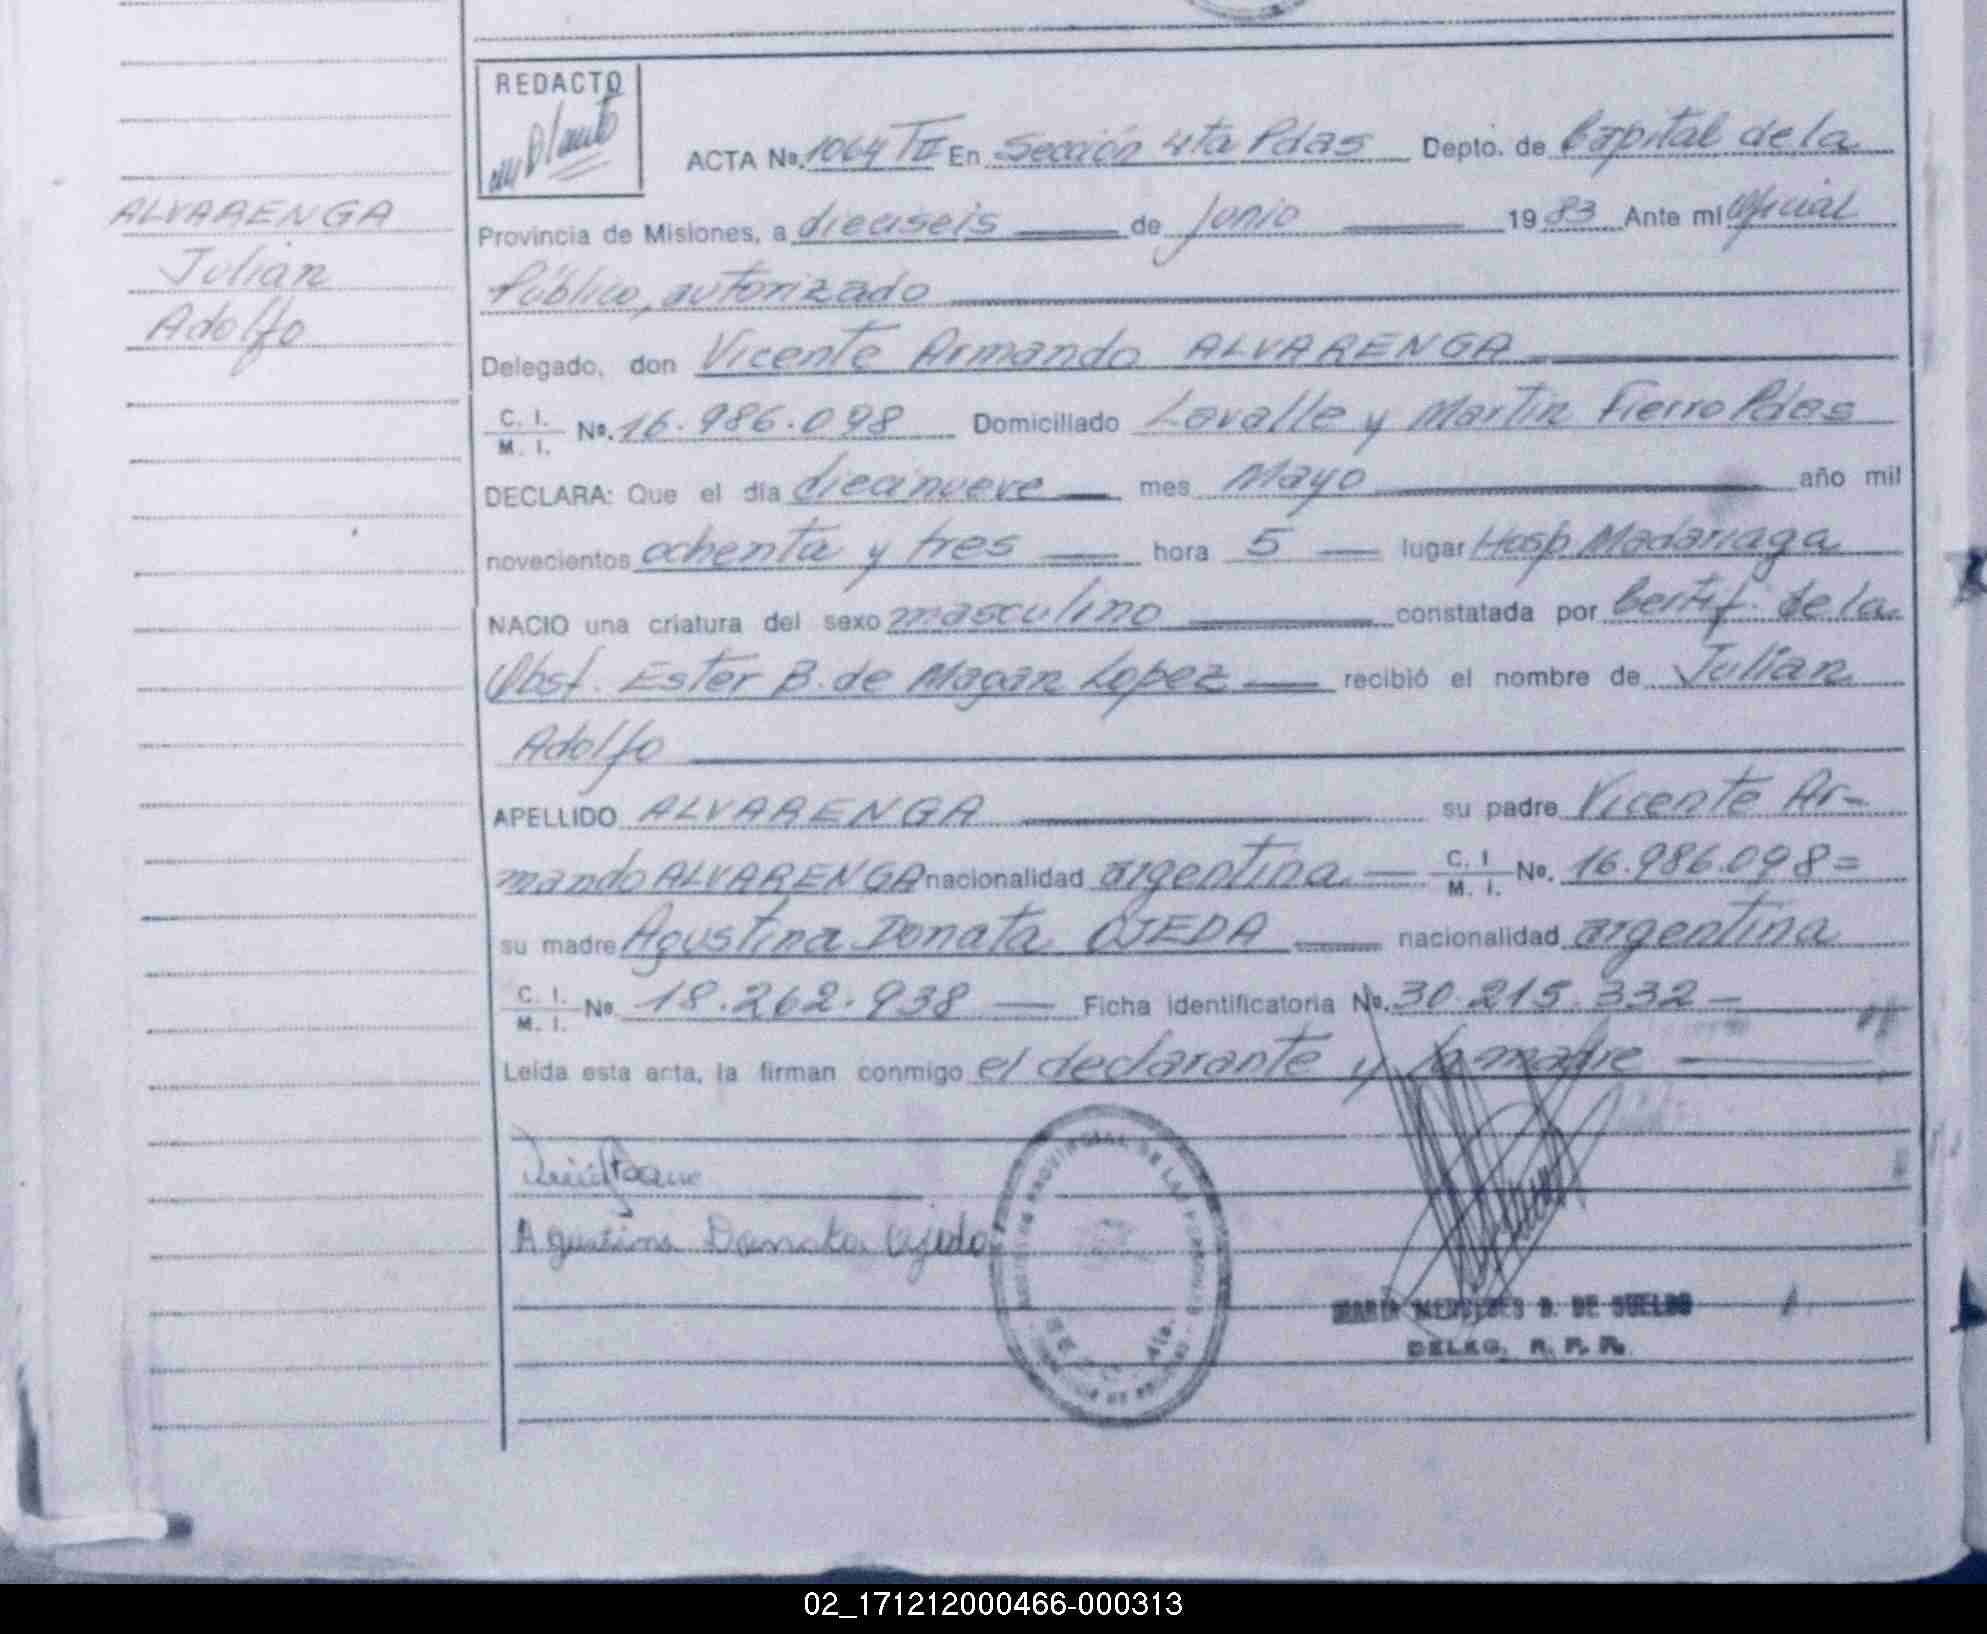 REDACTO
ACTA No. 1064 TII En Sección 4ta Pdas Depto. de Capital de la
Provincia de Misiones, a dieciseis de Junio 1983 Ante mí Oficial
Público, autorizado
ALVARENGA
Julian
Adolfo
Delegado, don Vicente Armando ALVARENGA
C. I. M. I. No. 16.986.098 Domiciliado Lavalle y Martin Fierro Pdas
DECLARA: Que el día diecinueve mes Mayo año mil
novecientos ochenta y tres hora 5 lugar Hosp. Madariaga
NACIO una criatura del sexo masculino constatada por Certif. de la
Obst. Ester B. de Magan Lopez recibió el nombre de Julian
Adolfo
APELLIDO ALVARENGA su padre Vicente Ar-
mando ALVARENGA nacionalidad argentina C. I. M. I. No. 16.986.098=
su madre Agustina Donata OJEDA nacionalidad argentina
C. I. M. I. No. 18.262.938 Ficha identificatoria No. 30.215.332
Leída esta acta, la firman conmigo el declarante y la madre
Agustina Donata Ojeda
MARIA MERCEDES B. DE SUELDO
DELEG. R. P. P.
02_171212000466-000313